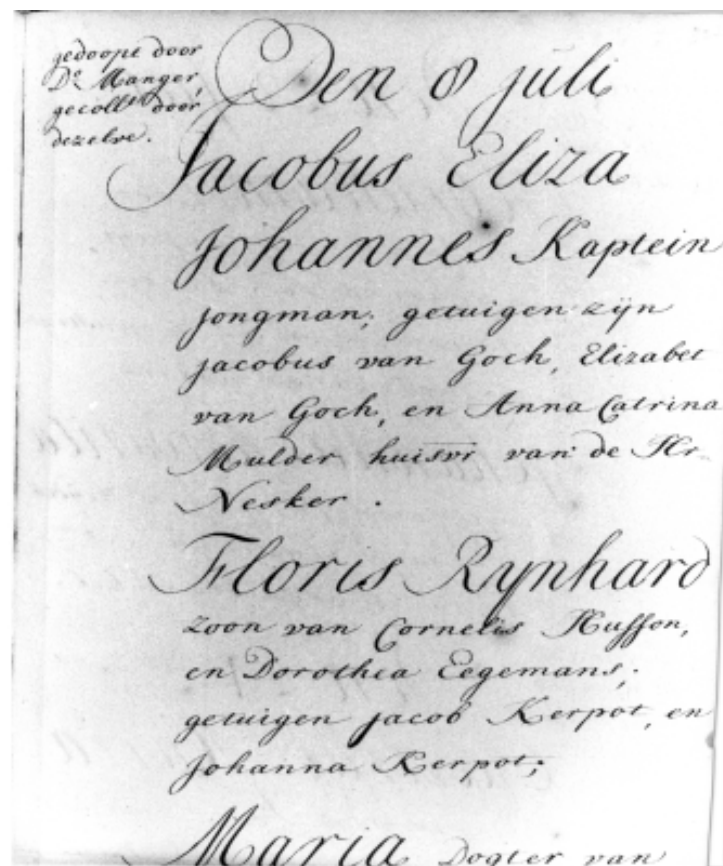 gedoopt door
Ds. Manger,
gecollt. door
dezelve.
Den 8 juli
Jacobus Eliza
Johannes Kaptein
jongman; getuigen zÿn
jacobus van Goch, Elizabet
van Goch, en Anna Catrina
Mulder huisvr van de Hr.
Nesker.
Floris Rÿnhard
zoon van Cornelis Husson,
en Dorothea Eegemans;
getuigen jacob Kerpot, en
Johanna Kerpot;
Maria Dogter van